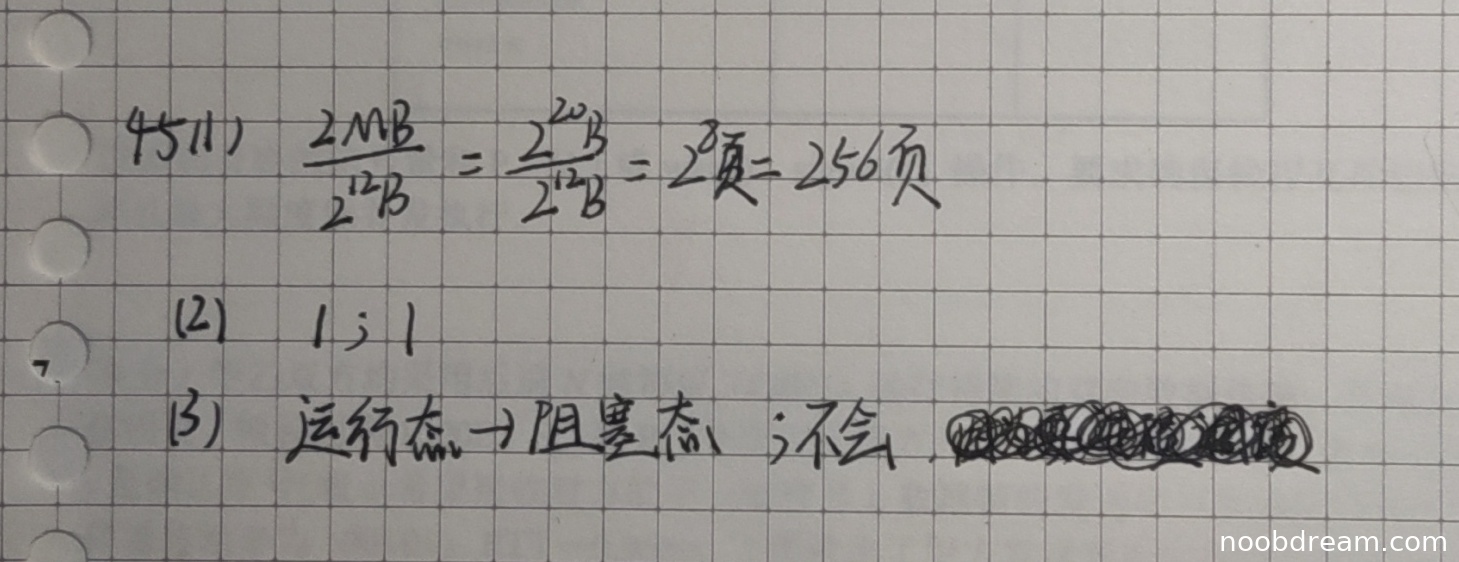 45(1) 2MB/2^12B = 2^20B/2^12B = 2^8页 = 256页
(2) 1 ; 1
(3) 运行态→阻塞态 ; 不会.
noobdream.com